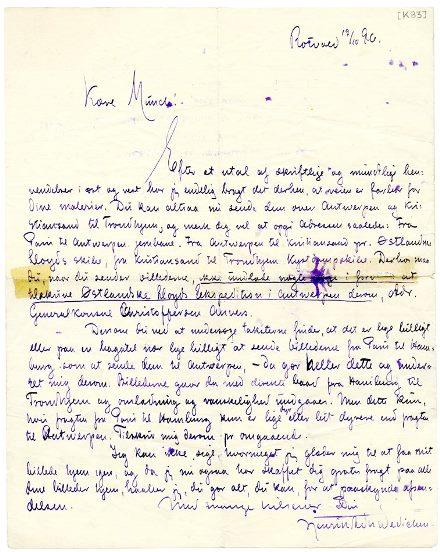 [K93]
Rotvold 19/10 96.
Kære Munch!
Efter et utal af skriftlige og mundtlige hen-
vendelser i øst og vest har jeg endelig bragt det derhen, at veien er farbar for
Dine malerier. Du kan altsaa nu sende dem over Antwerpen og Kri-
stianssand til Trondhjem, og merk dig vel at opgi adressen saaledes: Fra
Paris til Antwerpen jernbane. Fra Antwerpen til Kristianssand pr. Østlandske
Lloyds skibe, fra Kristianssand til Trondhjem Kyst
Du, naar du sender billederne, ikke undlade i at
Østlandske Lloyds Expedition i Antwerpen derom, Adr.
Generalkonsul Christophersen
Dersom du ved at undersøge takterne finder, at det er lige billigt
eller paa en bagatel nær lige billigt at sende billederne fra Paris til Ham-
burg som at sende dem til Antwerpen, – da gør heller dette og under-
ret mig derom. Billederne gaar da med directe baad fra Hamburg til
Trondhjem og omladning og vanskelighed undgaaes. Men dette kun,
hvis fragten fra Paris til Hamburg kun er lige eller lidt dyrere end fragten
til Antwerpen. Tilskriv mig derom pr. omgaaende.
Jeg kan ikke sige, hvor meget jeg glæder mig til at faa mit
billede hjem igen, og da jeg nu ogsaa har skaffet dig gratis fragt paa alle
dine billeder hjem, haaber jeg, du gør alt, du kan, for at paaskynde afsen-
delsen.
Med mange hilsener Din